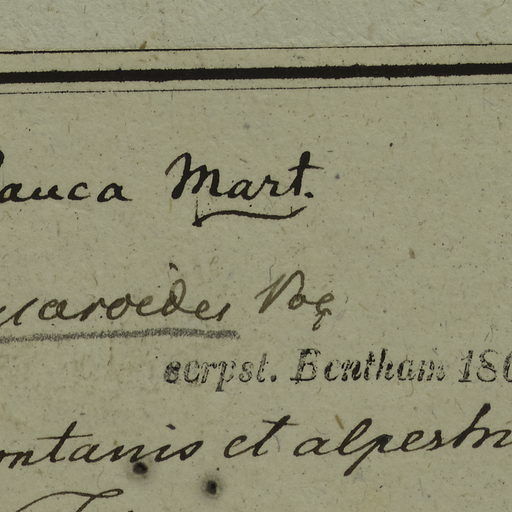 lauca Mart.
uaroides Vog
scrpst. Bentham 186
ontanis et alpestri